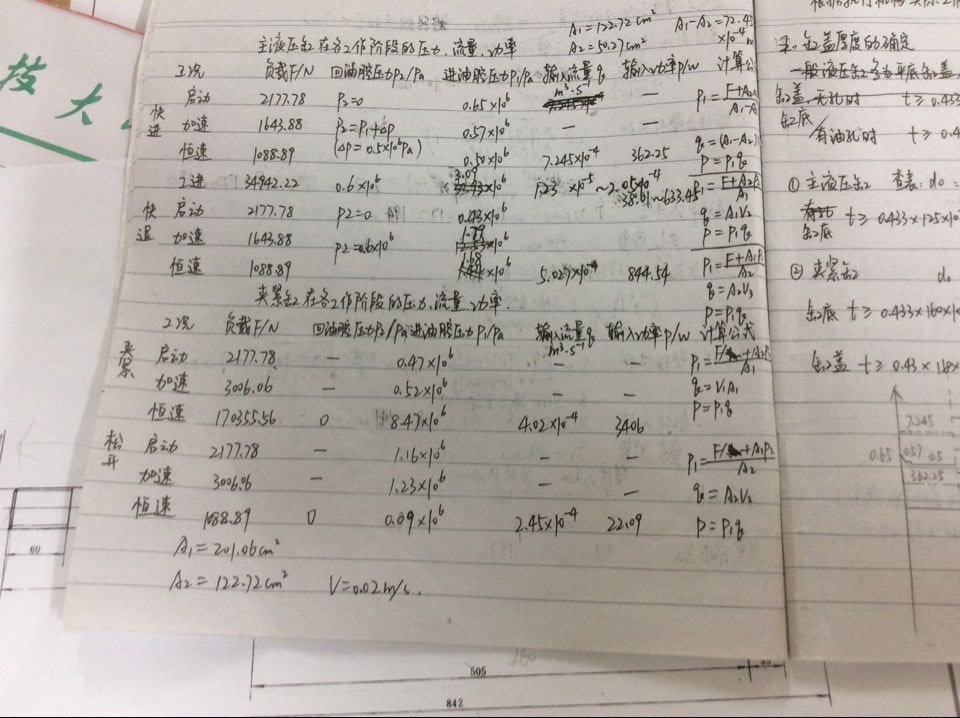 技 大
A₁=122.72cm² A₁-A₂=72.45
A₂=50.27cm² ×10⁻⁴m
主液压缸在各工作阶段的压力、流量、功率
工况 负载F/N 回油腔压力P₂/Pa 进油腔压力P₁/Pa 输入流量q m³·s⁻¹ 输入功率P/W 计算公
快进 启动 2177.78 P₂=0 0.65×10⁶ — P₁=F+A₂
加速 1643.88 P₂=P₁+Δp 0.57×10⁶ — — A₁-A
(Δp=0.5×10⁶Pa) q=(A₁-A₂)
恒速 1088.89 0.50×10⁶ 7.245×10⁻⁴ 362.25 P=P₁q
工进 34942.22 0.6×10⁶ 3.09×10⁶ 1.23×10⁻⁵~2.05×10⁻⁴ 38.01~633.45 P₁=F+A₂P₂/A₁
快退 启动 2177.78 P₂=0 0.43×10⁶ q=A₁V₂
加速 1643.88 P₂=0.6×10⁶ 1.79×10⁶ P=P₁q
恒速 1088.89 1.68×10⁶ 5.027×10⁻⁴ 844.54 P₁=F+A₁P/A₂
q=A₂V₃
夹紧缸在各工作阶段的压力、流量、功率. P=P₁q
工况 负载F/N 回油腔压力P₂/Pa 进油腔压力P₁/Pa 输入流量q m³·s⁻¹ 输入功率P/W 计算公式
夹紧 启动 2177.78 — 0.47×10⁶ — — P₁=F+A₂P₂/A₁
加速 3006.06 — 0.52×10⁶ q=V₁A₁
恒速 170355.56 0 8.47×10⁶ 4.02×10⁻⁴ 3406 P=P₁q
松开 启动 2177.78 — 1.16×10⁶ — — P₁=F+A₁P₂/A₂
加速 3006.06 — 1.23×10⁶ — — q=A₂V₂
恒速 1088.89 0 0.09×10⁶ 2.45×10⁻⁴ 22.09 P=P₁q
A₁=201.06cm²
A₂=122.72cm² V=0.02m/s.
缸盖厚度的确定
一般液压缸多为平底缸盖,
缸盖 无孔时 t≥0.433
缸底
有油孔时 t≥0.4
① 主液压缸 查表: d₀=
缸底 t≥0.433×125×10
② 夹紧缸 d₀
缸底 t≥0.433×160×10
缸盖 t≥0.43×118×
7.245
0.65 0.57 0.5
362.25
60
505
842